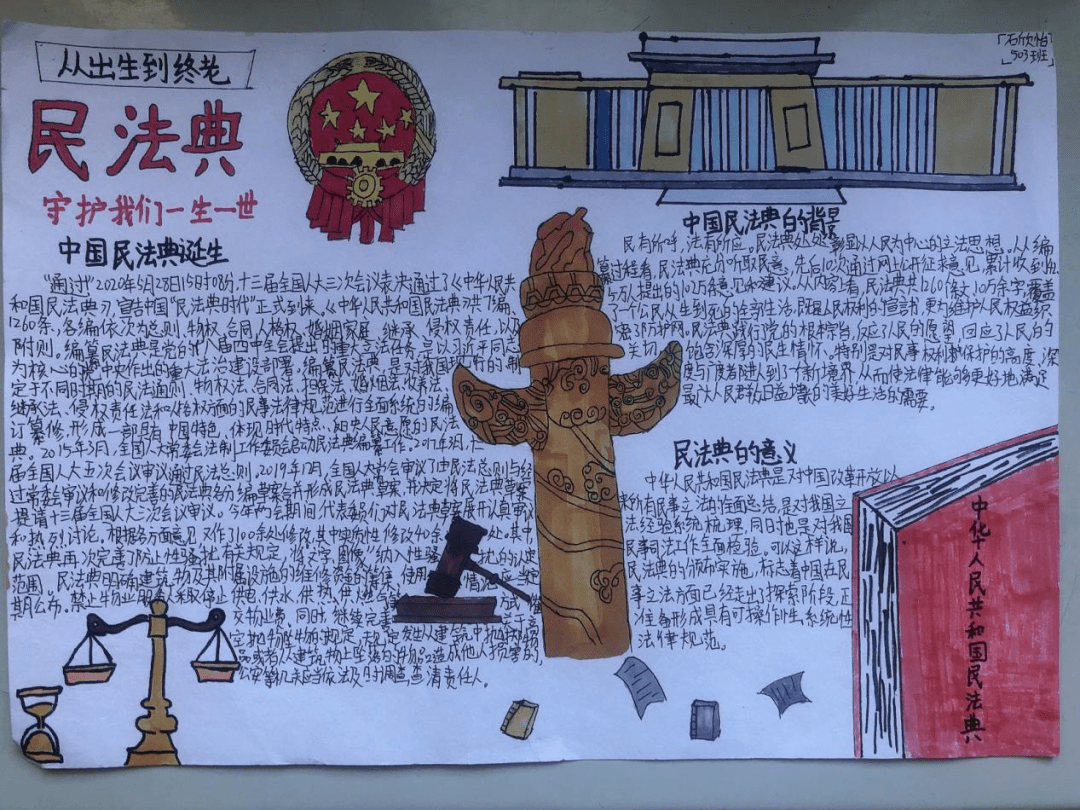 从出生到终老
民法典
守护我们一生一世
「石欣怡
503班」
中国民法典诞生
“通过”2020年5月28日15时08分,十三届全国人大三次会议表决通过了《中华人民共
和国民法典》,宣告中国“民法典时代”正式到来。《中华人民共和国民法典》共7编、
1260条,各编依次为总则、物权、合同、人格权、婚姻家庭、继承、侵权责任,以及
附则。编纂民法典是党的十八届四中全会提出的重大立法任务,是以习近平同志
为核心的党中央作出的重大法治建设部署。编纂民法典,是对我国现行的制
定于不同时期的民法通则、物权法、合同法、担保法、婚姻法、收养法、
继承法、侵权责任法和人格权方面的民事法律规范进行全面系统的编
订纂修,形成一部具有中国特色、体现时代特点、反映人民意愿的民法
典。2015年3月,全国人大常委会法制工作委员会启动民法典编纂工作。2017年3月,十二
届全国人大五次会议审议通过民法总则,2019年12月,全国人大常委会审议了由民法总则与经
过常委会审议和修改完善的民法典各分编草案合并形成民法典草案,并决定将民法典草案
提请十三届全国人大三次会议审议。今年两会期间,代表委员们对民法典草案展开认真审议
和热烈讨论,根据各方面意见,又作了100余处修改,其中实质性修改40余处。其中,
民法典再次完善了防止性骚扰有关规定,将文字、图像“纳入性骚 的认定
范围。民法典明确建筑物及其附属设施的维修资金的筹集、使用 情况应当定
期公布。禁止物业服务人采取停止供电、供水、供热、供燃气
交物业费。同时,继续完善 关于高
空抛物坠物的规定,规定发生从建筑中抛掷物
品或者从建筑物上坠落的物品造成他人损害的,
公安等机关应当依法及时调查,查清责任人。
中国民法典的背景
民有所呼,法有所应。民法典处处彰显以人民为中心的立法思想。从编
纂过程看,民法典充分听取民意,先后10次通过网上公开征求意见,累计收到42.
5万人提出的102万条意见和建议。从内容看,民法典共1260条,10万余字,覆盖
了一个公民从生到死的全部生活,既是人民权利的宣言书,更为维护人民权益织
密了防护网。民法典践行党的根本宗旨,反应了人民的愿望,回应了人民的
关切,饱含深厚的民生情怀、特别是对民事权利教保护的高度、深
度与广度都进入到了一个新境界,从而使法律能够更好地满足
最广大人民群众日益增长的美好生活的需要。
民法典的意义
中华人民共和国民法典是对中国改革开放以
来所有民事立法的全面总结,是对我国立
法经验系统梳理,同时也是对我国
民事司法工作全面检验。可以这样说,
民法典的颁布实施,标志着中国在民
事立法方面已经走出探索阶段,正
准备形成具有可操作性、系统性
法律规范。
中华人民共和国民法典